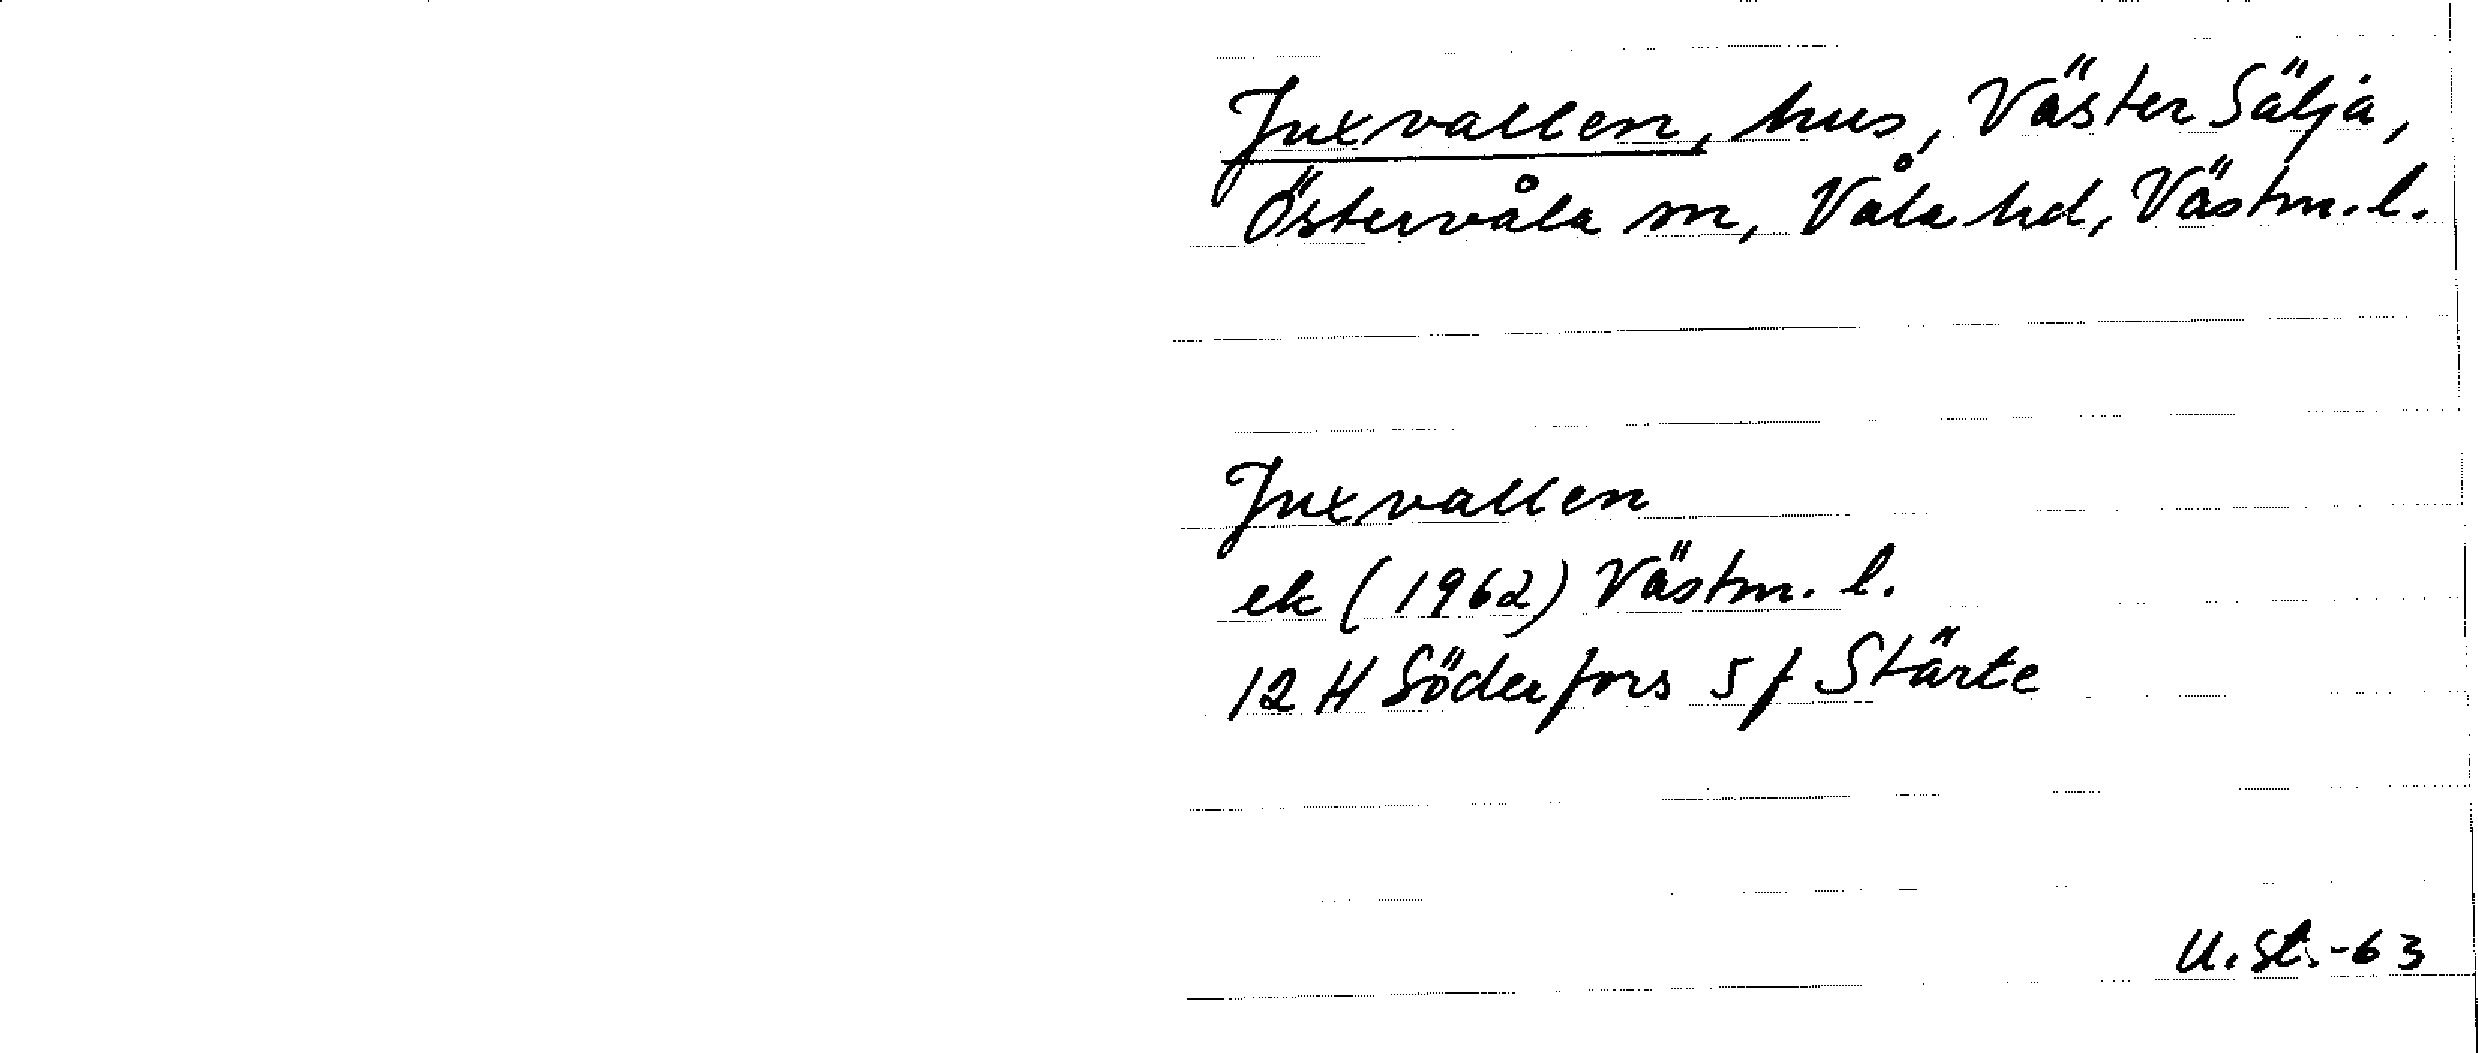 Juxvallen, hus, Väster Sälja,
Östervåla sn, Våla hd, Västm. l.
Juxvallen
ek (1962) Västm. l.
12 H Söderfors 5 f Stärte
U. St. -63